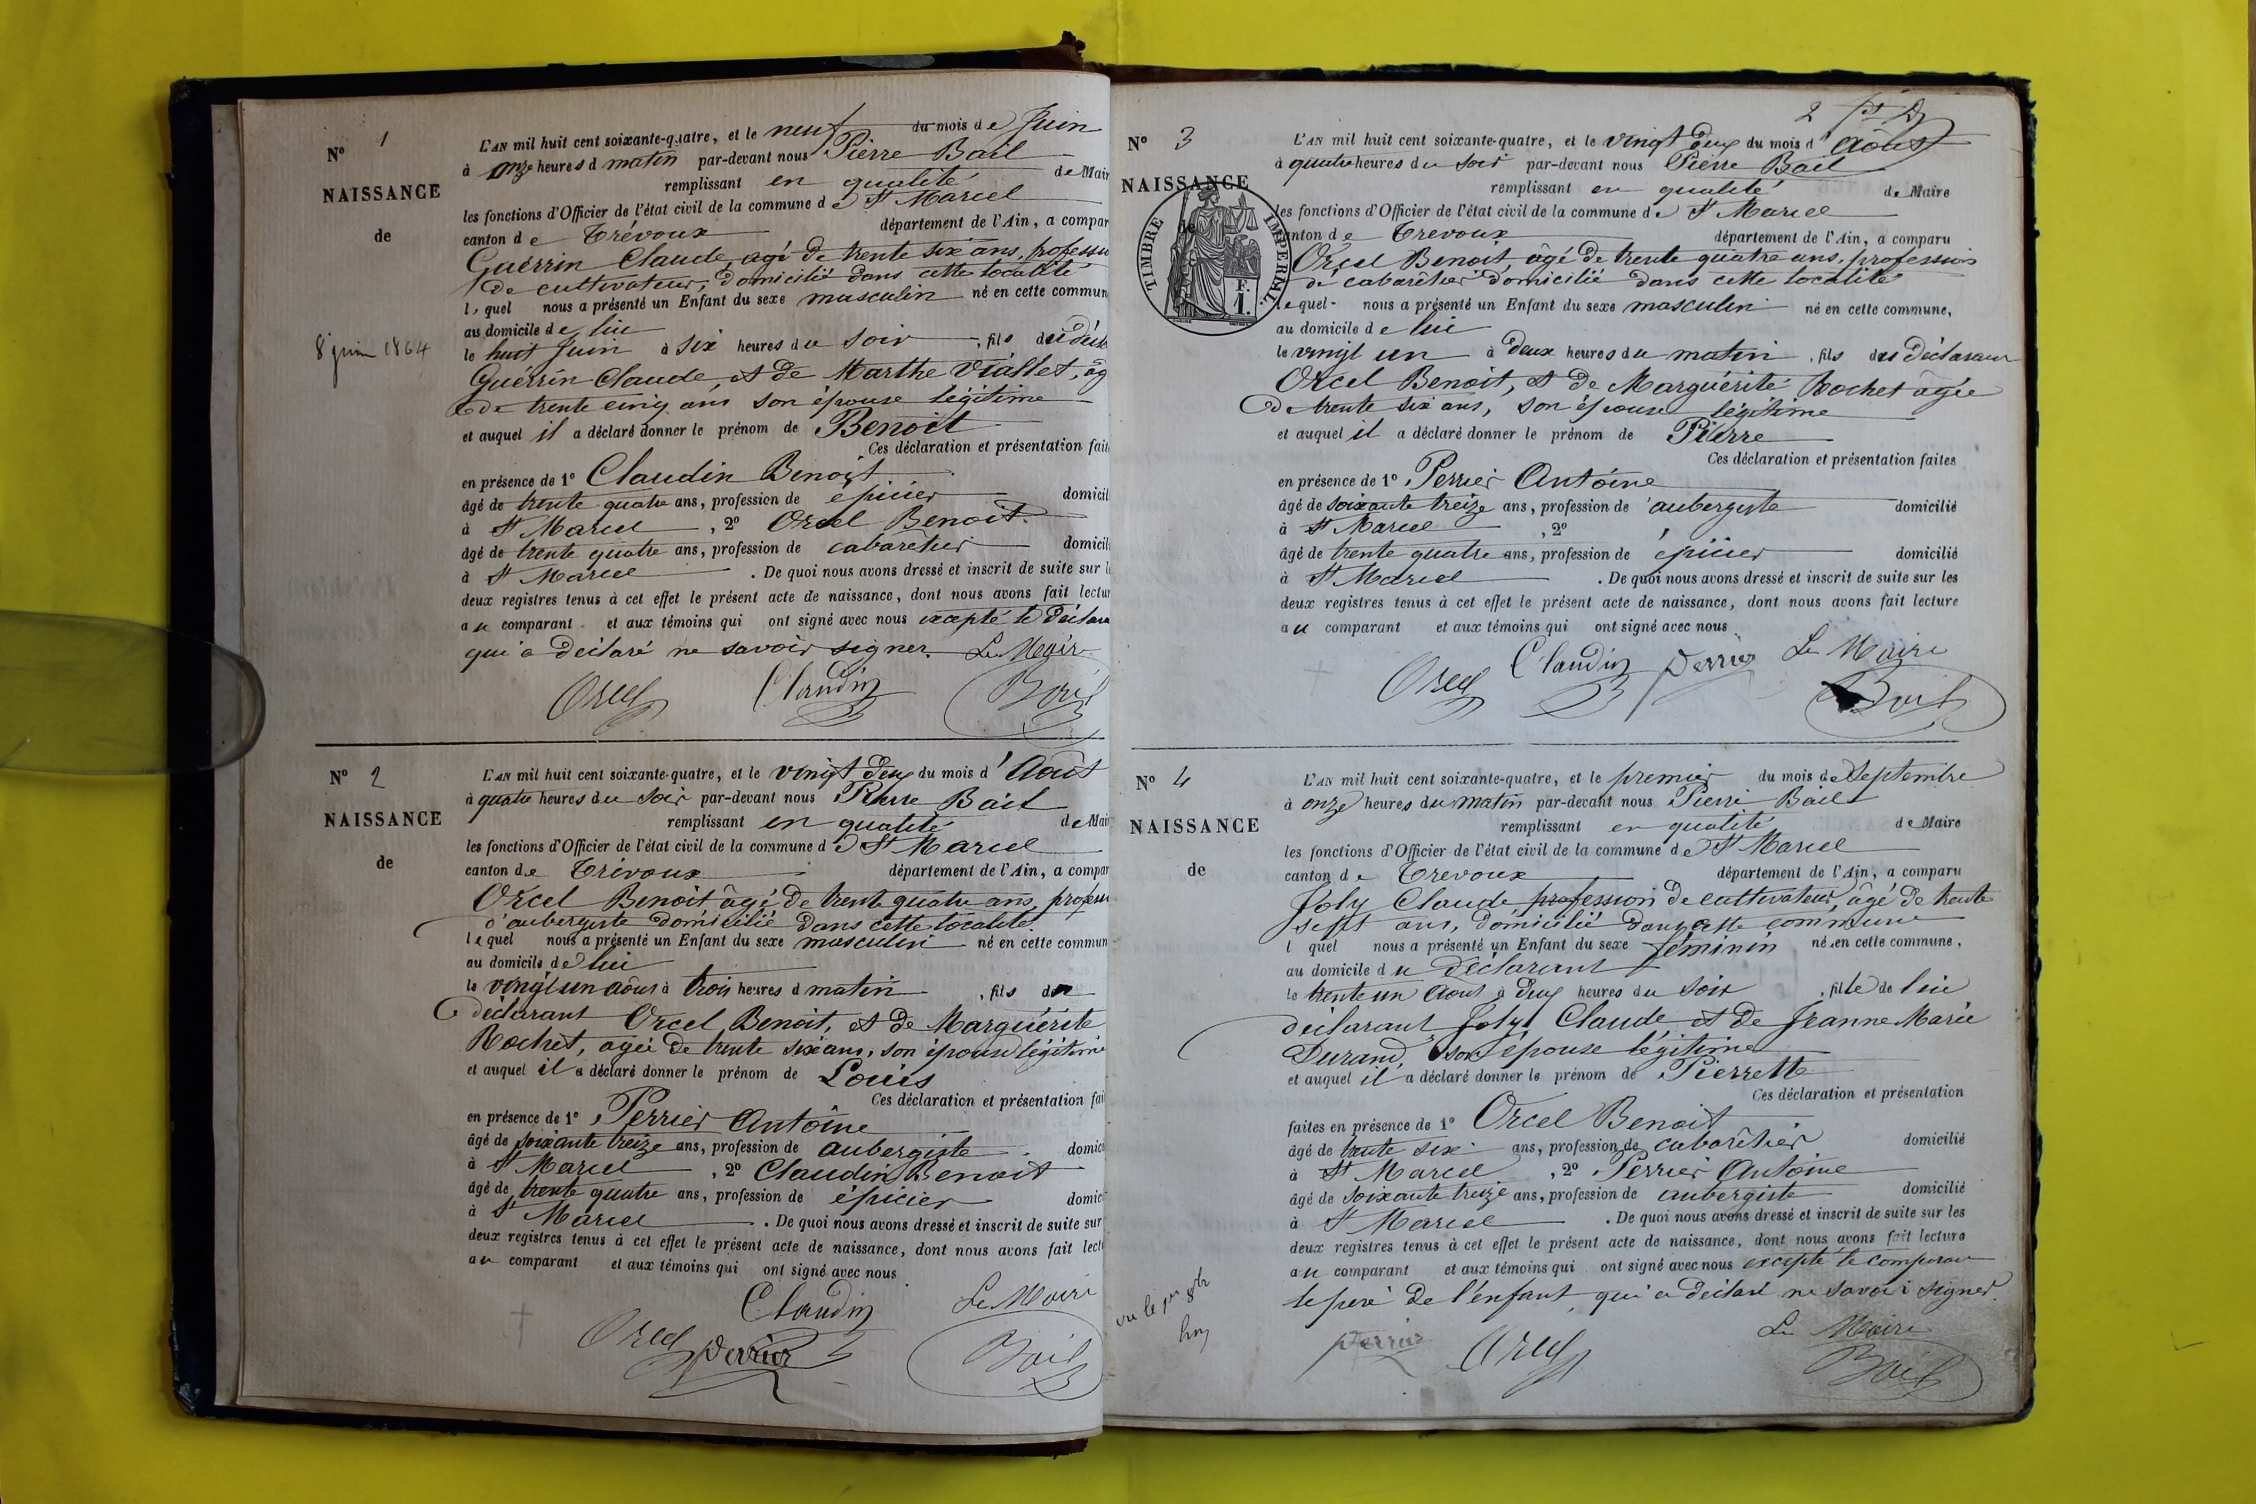 N° 1
NAISSANCE
de
8 juin 1864
L'AN mil huit cent soixante-quatre, et le neuf du mois de Juin
à onze heures d matin par-devant nous Pierre Bail
remplissant en qualité de Mair
les fonctions d'Officier de l'état civil de la commune de St Marcel
canton de Trévoux département de l'Ain, a compar
Guérrin Claude, agé de trente six ans, professi
de cultivateur, domicilié dans cette localité
l quel nous a présenté un Enfant du sexe masculin né en cette commun
au domicile de lui
le huit Juin à six heures du soir, fils du décla
Guérrin Claude, et de Marthe Viallet, âg
de trente cinq ans son épouse légitime
et auquel il a déclaré donner le prénom de Benoit
Ces déclaration et présentation fait
en présence de 1° Claudin Benoit
âgé de trente quatre ans, profession de épicier domicil
à St Marcel, 2° Orcel Benoit.
âgé de trente quatre ans, profession de cabaretier domicil
à St Marcel. De quoi nous avons dressé et inscrit de suite sur l
deux registres tenus à cet effet le présent acte de naissance, dont nous avons fait lectur
au comparant et aux témoins qui ont signé avec nous excepté le déclara
qui a déclaré ne savoir signer. Le Maire
Orcel Claudin Bail
N° 2
NAISSANCE
de
L'AN mil huit cent soixante-quatre, et le vingt deux du mois d'Août
à quatre heures du soir par-devant nous Pierre Bail
remplissant en qualité de Mair
les fonctions d'Officier de l'état civil de la commune de St Marcel
canton de Trévoux département de l'Ain, a compar
Orcel Benoit âgé de trente quatre ans, profess
d'aubergiste domicilié dans cette localité.
lequel nous a présenté un Enfant du sexe masculin né en cette commun
au domicile de lui
le vingt un août à trois heures d matin, fils du
déclarant Orcel Benoit, et de Marguérite
Rochet, agée de trente six ans, son épouse légitime
et auquel il a déclaré donner le prénom de Louis
Ces déclaration et présentation fai
en présence de 1° Perrier Antoine
âgé de soixante treize ans, profession de aubergiste domici
à St Marcel, 2° Claudin Benoit
âgé de trente quatre ans, profession de épicier domici
à St Marcel. De quoi nous avons dressé et inscrit de suite sur
deux registres tenus à cet effet le présent acte de naissance, dont nous avons fait lect
au comparant et aux témoins qui ont signé avec nous
Claudin Le Maire
Orcel Perrier Bail
2
N° 3
NAISSANCE
de
TIMBRE IMPERIAL.
F.
1.
L'AN mil huit cent soixante-quatre, et le vingt deux du mois d'Août
à quatre heures du soir par-devant nous Pierre Bail
remplissant en qualité de Maire
les fonctions d'Officier de l'état civil de la commune de St Marcel
canton de Trevoux département de l'Ain, a comparu
Orcel Benoit âgé de trente quatre ans, profession
de cabaretier domicilié dans cette localité
lequel nous a présenté un Enfant du sexe masculin né en cette commune,
au domicile de lui
le vingt un à deux heures du matin, fils du déclarant
Orcel Benoit, et de Marguérite Rochet âgée
de trente six ans, son épouse légitime
et auquel il a déclaré donner le prénom de Pierre
Ces déclaration et présentation faites
en présence de 1° Perrier Antoine
âgé de soixante treize ans, profession de aubergiste domicilié
à St Marcel, 2°
âgé de trente quatre ans, profession de épicier domicilié
à St Marcel. De quoi nous avons dressé et inscrit de suite sur les
deux registres tenus à cet effet le présent acte de naissance, dont nous avons fait lecture
au comparant et aux témoins qui ont signé avec nous
Orcel Claudin Perrier Le Maire
Bail
N° 4
NAISSANCE
de
L'AN mil huit cent soixante-quatre, et le premier du mois de Septembre
à onze heures du matin par-devant nous Pierre Bail
remplissant en qualité de Maire
les fonctions d'Officier de l'état civil de la commune de St Marcel
canton de Trevoux département de l'Ain, a comparu
Joly Claude profession de cultivateur, âgé de trente
sept ans, domicilié dans cette commune
l quel nous a présenté un Enfant du sexe féminin né en cette commune,
au domicile du déclarant
le trente un Aout à deux heures du soir, fille de lui
déclarant Joly Claude et de Jeanne Marie
Durand, son épouse légitime
et auquel il a déclaré donner le prénom de Pierrette
Ces déclaration et présentation
faites en présence de 1° Orcel Benoit
âgé de trente six ans, profession de cabarêtier domicilié
à St Marcel, 2° Perrier Antoine
âgé de soixante treize ans, profession de aubergiste domicilié
à St Marcel. De quoi nous avons dressé et inscrit de suite sur les
deux registres tenus à cet effet le présent acte de naissance, dont nous avons fait lecture
au comparant et aux témoins qui ont signé avec nous excepté le comparant
le père de l'enfant, qui a déclaré ne savoir signer.
vu le 1er 8bre
Perrier Orcel Le Maire
Bail